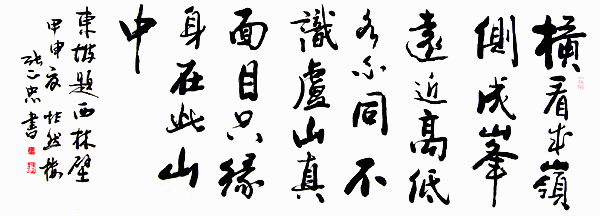 橫看成嶺
側成峯
遠近高低
各不同不
識盧山真
面目只緣
身在此山
中
東坡題西林壁
甲申
忠書